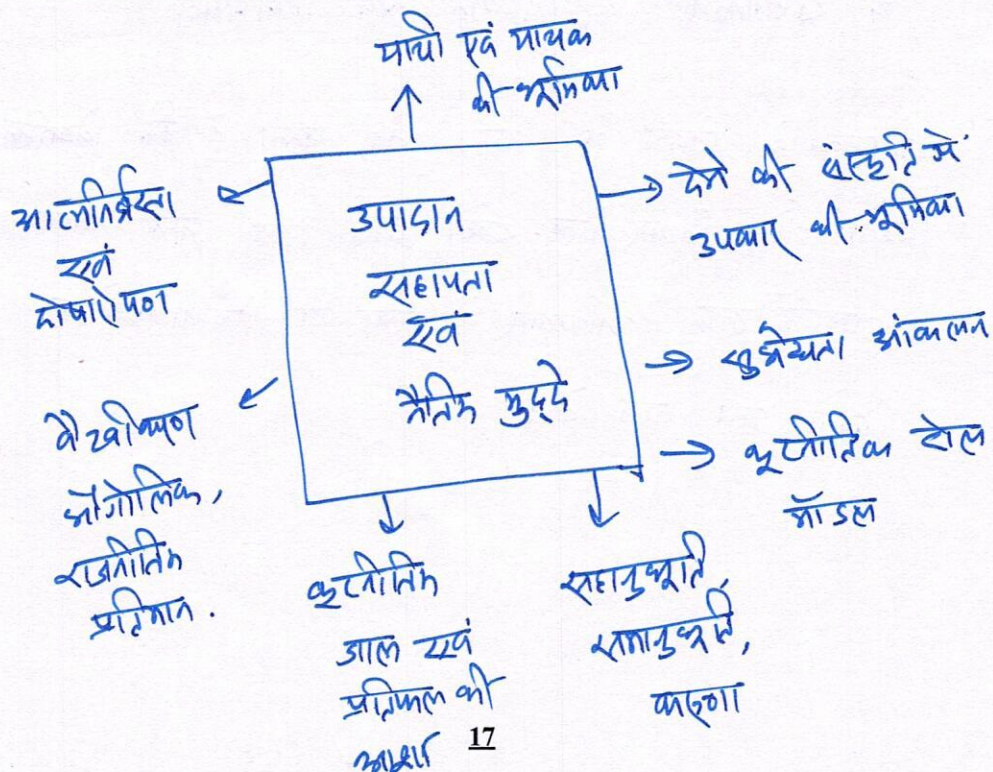 याची एवं याचक
की भूमिका
आत्मनिर्भरता
एवं
दोषारोपण
उपादान
सहायता
एवं
नैतिक मुद्दे
देने की संस्कृति में
उपकार की भूमिका
सुभेद्यता आंकलन
कूटनीतिक रोल
मॉडल
वैश्वीकरण
भौगोलिक,
राजनीतिक
प्रतिमान.
कूटनीतिक
जाल एवं
प्रतिफल की
आशा
सहानुभूति,
समानुभूति,
करुणा
17